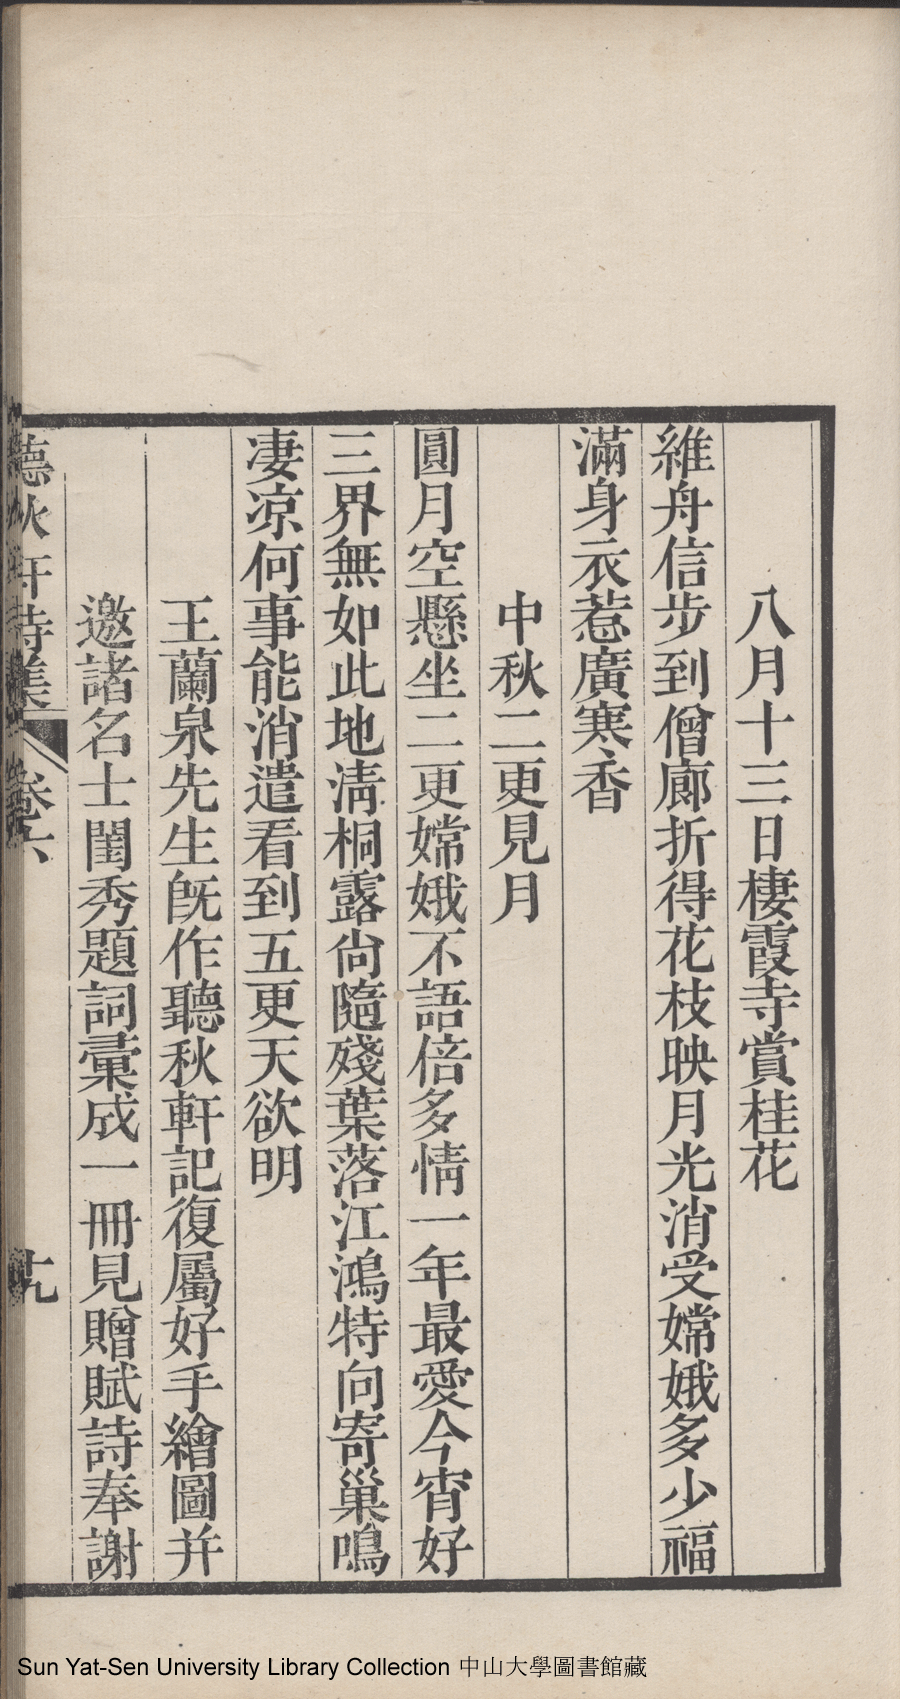 八月十三日棲霞寺賞桂花
維舟信步到僧廊折得花枝映月光消受嫦娥多少福
滿身衣惹廣寒香
中秋二更見月
圓月空懸坐二更嫦娥不語倍多情一年最愛今宵好
三界無如此地淸桐露尙隨殘葉落江鴻特向寄巢鳴
凄凉何事能消遣看到五更天欲明
王蘭泉先生旣作聽秋軒記復屬好手繪圖并
邀諸名士閨秀題詞彙成一冊見贈賦詩奉謝
聽秋軒詩集 卷六 十九
Sun Yat-Sen University Library Collection 中山大學圖書館藏